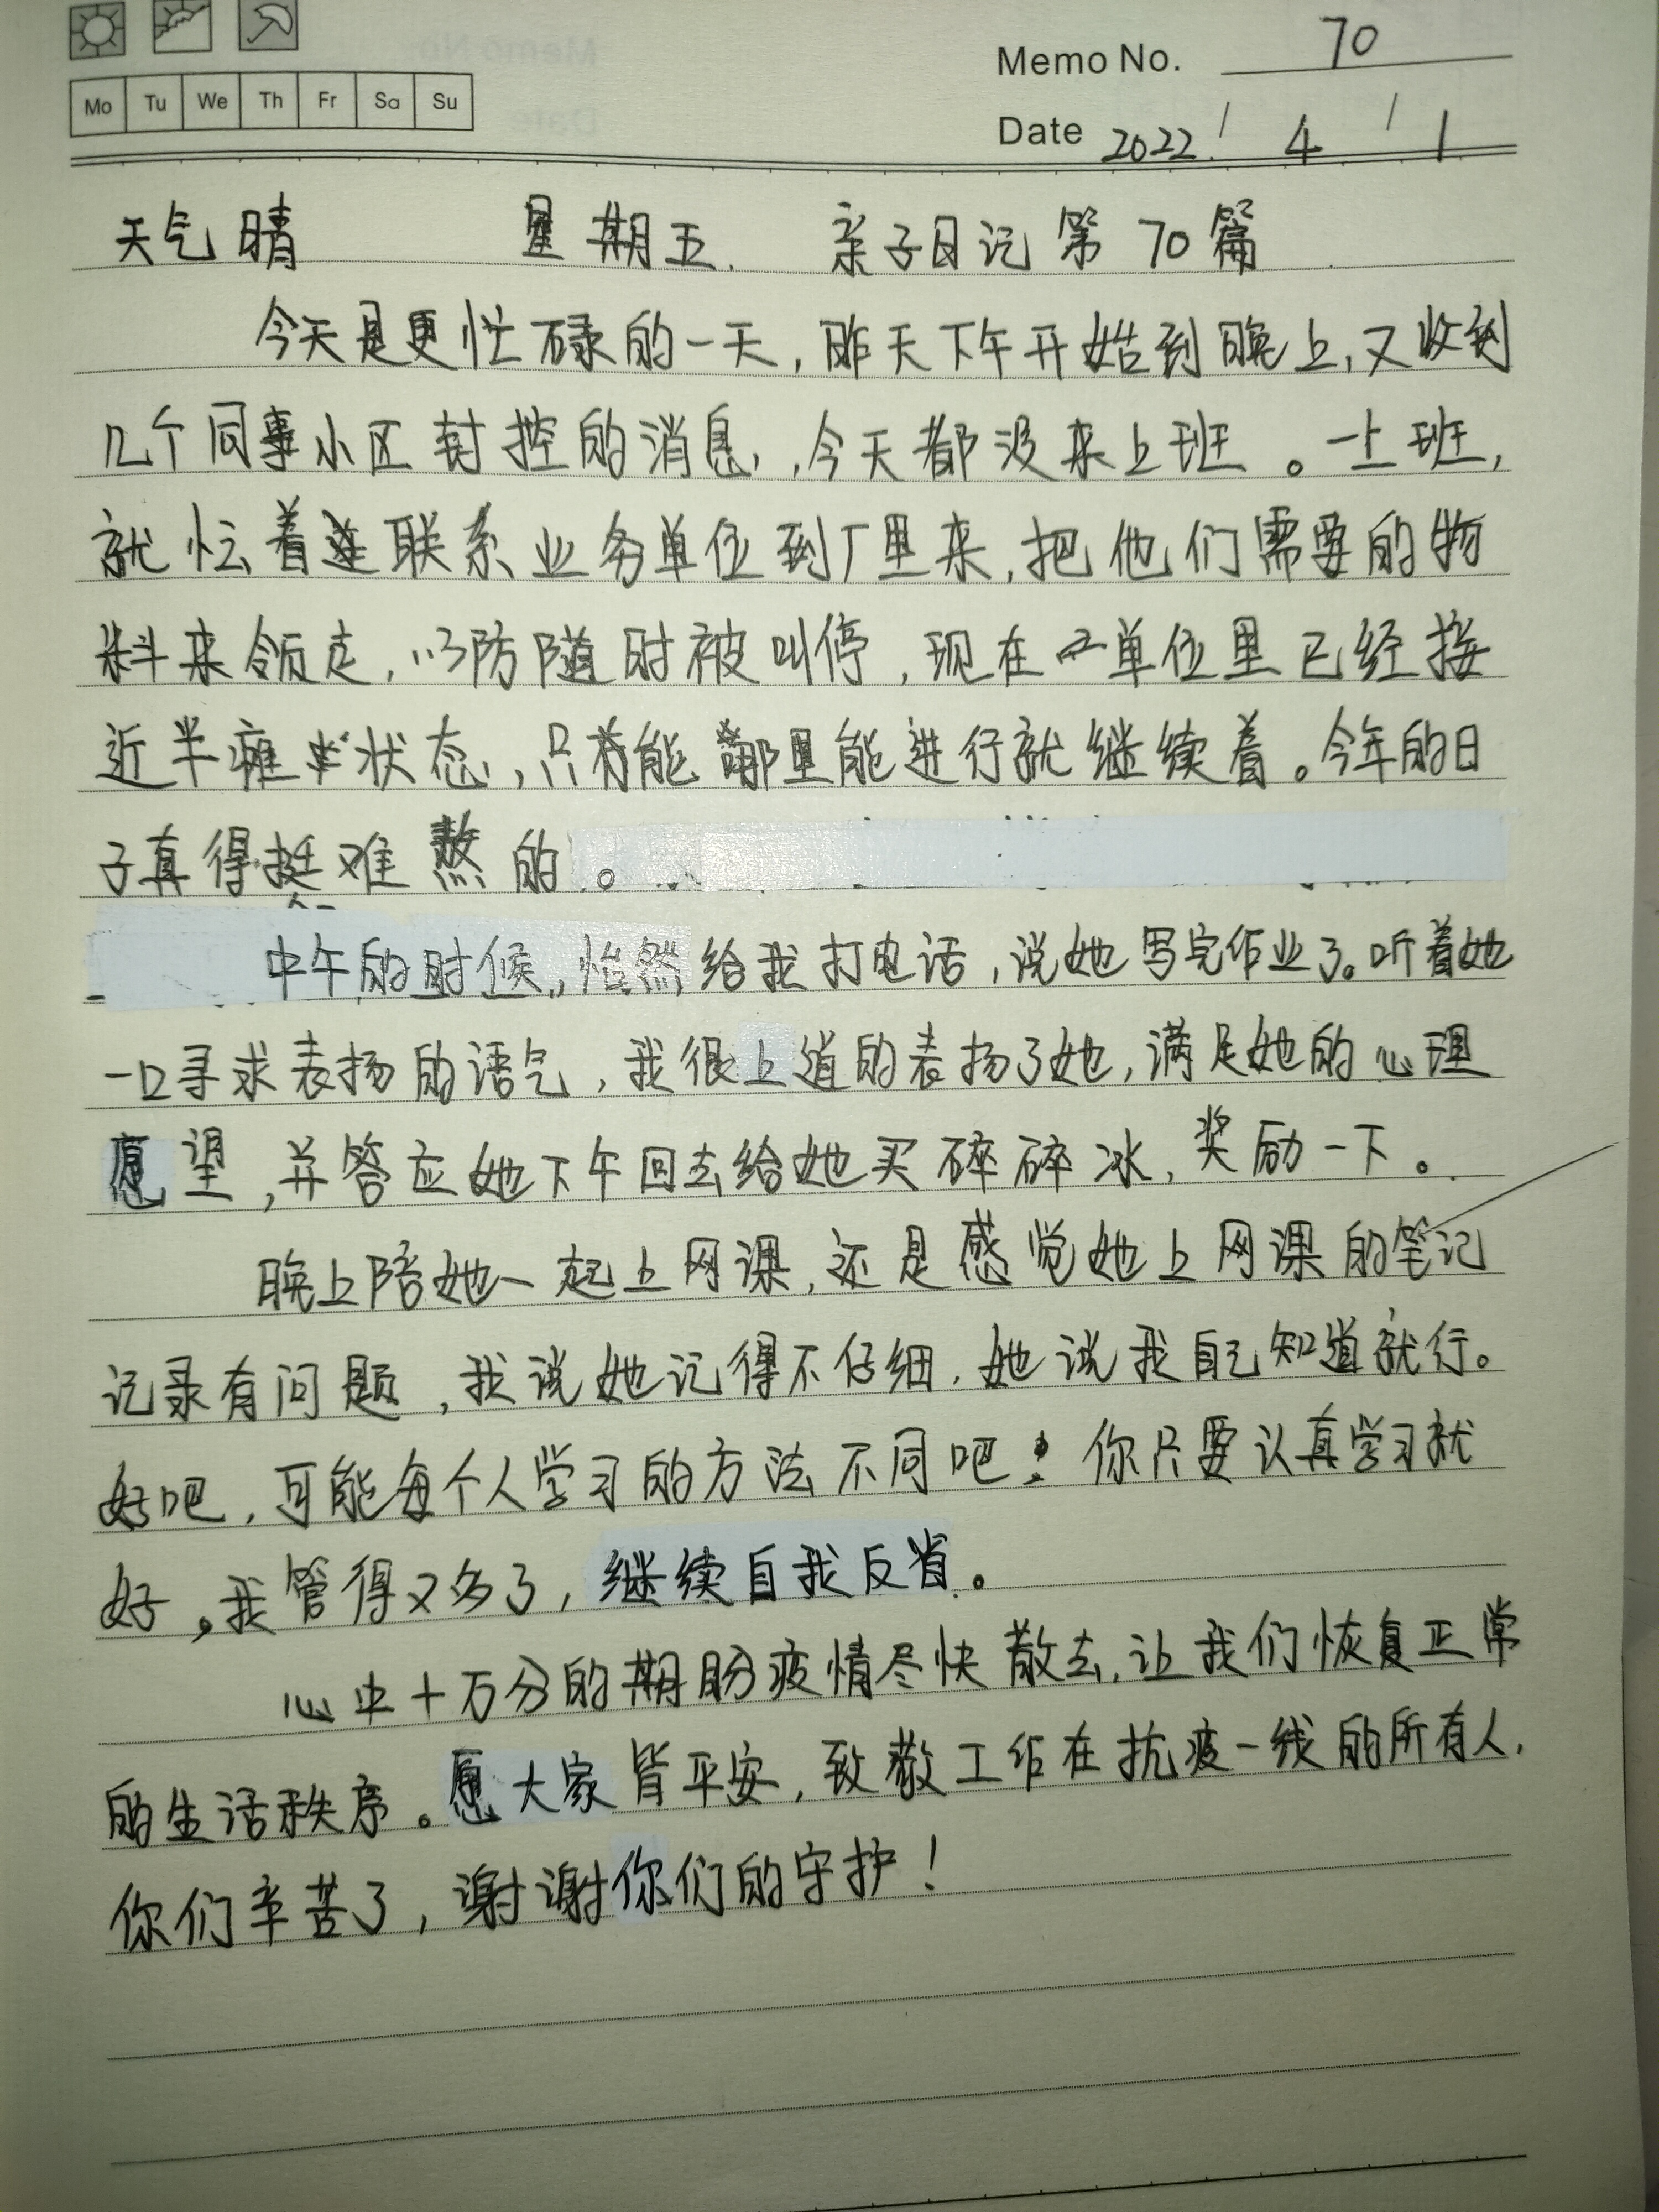 Memo No. 70
Mo Tu We Th Fr Sa Su
Date 2022 / 4 / 1
天气晴 星期五. 亲子日记第70篇
今天是更忙碌的一天,昨天下午开始到晚上,又收到
几个同事小区封控的消息,今天都没来上班。一上班,
就忙着联系业务单位到厂里来,把他们需要的物
料来领走,以防随时被叫停,现在单位里已经接
近半瘫状态,只能哪里能进行就继续着。今年的日
子真得挺难熬的。
中午的时候,怡然给我打电话,说她写完作业了。听着她
一口寻求表扬的语气,我很上道的表扬了她,满足她的心理
愿望,并答应她下午回去给她买碎碎冰,奖励一下。
晚上陪她一起上网课,还是感觉她上网课的笔记
记录有问题,我说她记得不仔细,她说我自己知道就行。
好吧,可能每个人学习的方法不同吧!你只要认真学习就
好。我管得又多了,继续自我反省。
心中十万分的期盼疫情尽快散去,让我们恢复正常
的生活秩序。愿大家皆平安,致敬工作在抗疫一线的所有人,
你们辛苦了,谢谢你们的守护!